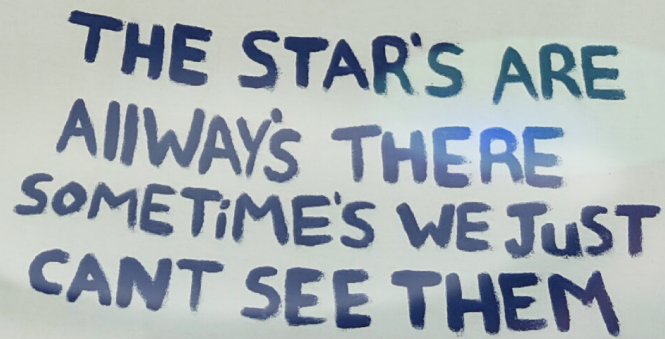 THE STAR'S ARE
AllWAY'S THERE
SOMETiME'S WE JuST
CANT SEE THEM